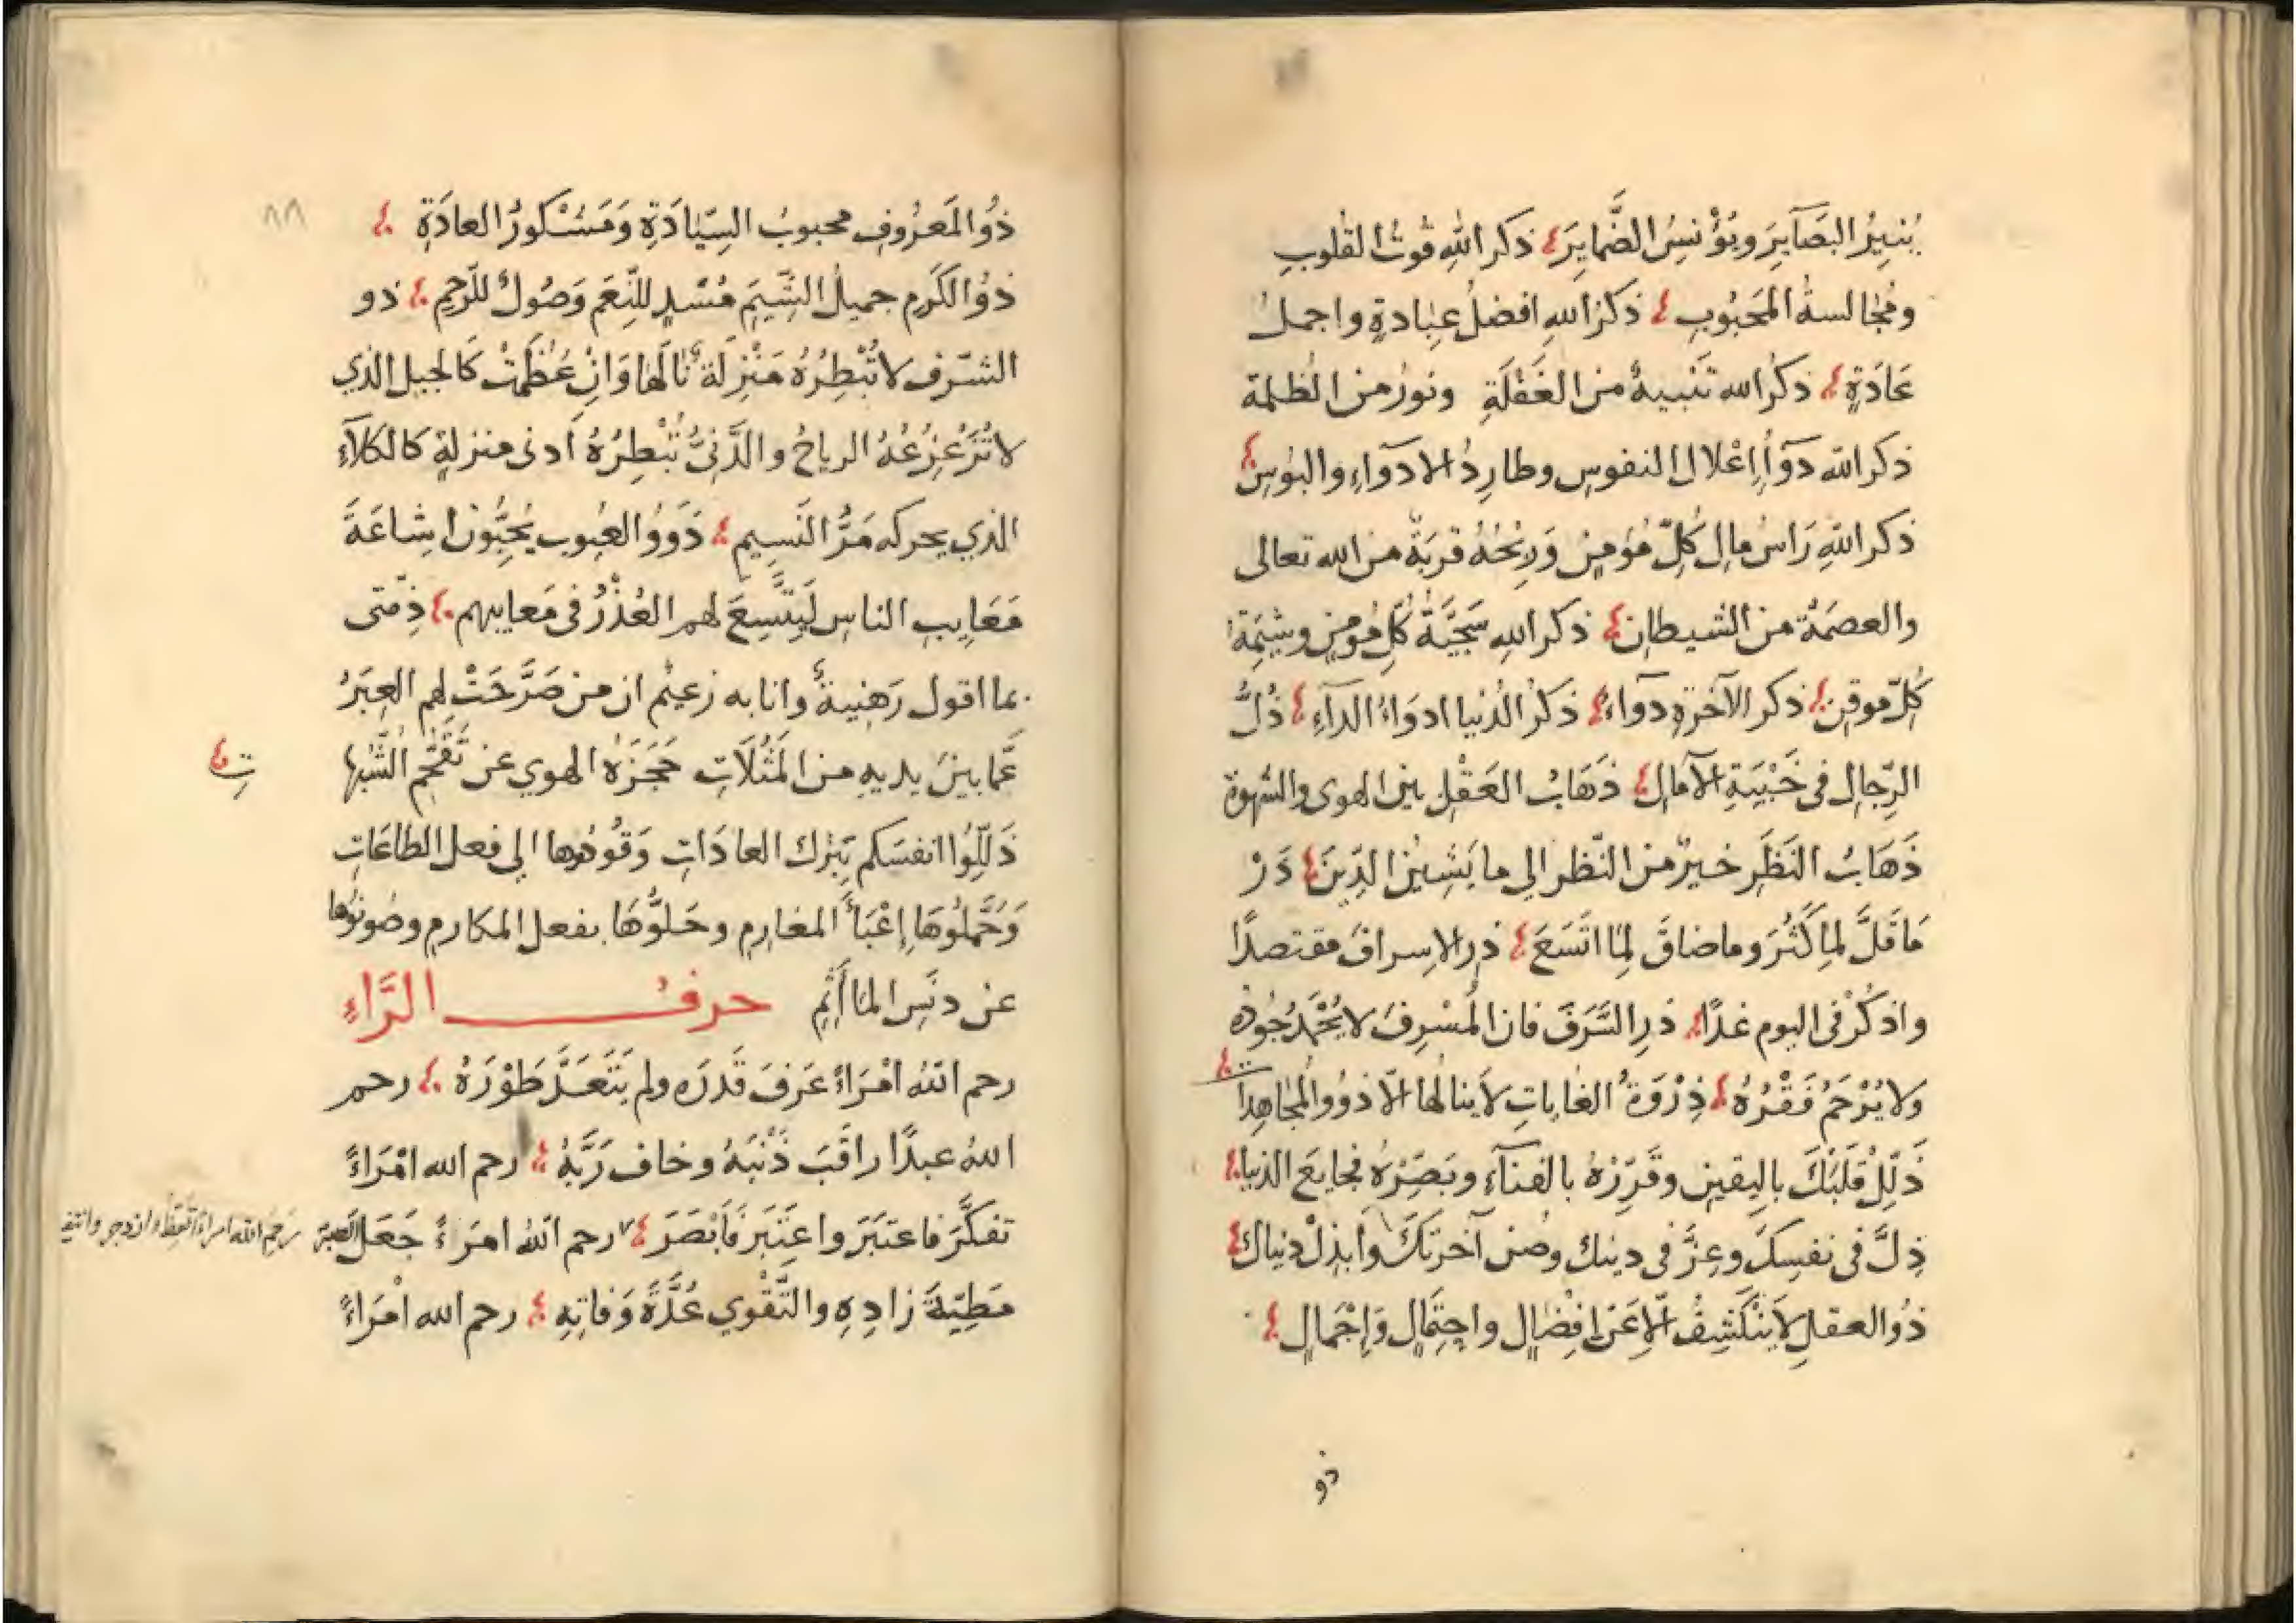 يُنِيرُ البَصَآيِرَ ويُؤْنسُ الضَّمايِرَ ذكر اللهِ قُوتُ القلوبِ
ومُجٰالسةُ المَحَبُوبِ ذكرُ اللهِ افضلُ عِبٰادةٍ واجملُ
عَادَةٍ ذكرُ الله تَنْبيهٌ من الغَفْلَةِ ونورٌ من الظلمة
ذكر الله دَوآأُ اِعْلالِ النفوسِ وطارِدُ الادوآءِ والبؤسِ
ذكر اللهِ رَاسُ مالِ كُلِّ مُؤمِنٍ وَرِبْحُهُ قربَةٌ من الله تعالى
والعصمَةُ من الشيطانِ ذكر اللهِ سَجِيَّةُ كُلِّ مُومِنٍ وشِيَمةُ
كُلِّ موقنٍ ذكر الآخرةِ دوآءٌ ذكرُ الدُّنيا ادوَاءُ الدآءِ ذُلُّ
الرِّجالِ في خَيْبَةِ الآمالِ ذَهَابُ العَقْلِ بين الهوى والشهوة
ذَهَابُ النَظَرِ خيرٌ من النَّظر الي ما يَشِينُ الدِّينَ ذَرْ
مَا قَلَّ لِمٰا كَثُرَ وما ضاقَ لِمٰا اتَّسَعَ ذرِ الاسرافَ مقتصدًا
واذكُرْ في اليوم غدًا ذَرِ السَّرَفَ فان المُسْرِفَ لا يُحْمَدُ جُودُه
ولا يُرْحَمُ فَقْرُهُ ذِرْوَةُ الغٰاياتِ لا ينالُها الّا ذوُوا المُجٰاهِدٰا
ت
ذَلِّلْ قَلْبَكَ بالِيقينِ وقَرِّرْهُ بالفنآءِ وبَصِّرْهُ فجايعَ الدنيا
ذِلَّ في نفسِكَ وعِزَّ في دينك وصُن آخرتكَ وابذِلْ دنياك
ذُو العقلِ لا يَنْكَشِفُ الّا عَن افِضٰالٍ واحِتمٰالٍ وَاِجْمٰالٍ
ذو
٨٨
ذُو المَعرُوفِ محبوبُ السِّيٰادَةِ وَمَشْكورُ العادَةِ
ذوُ الكَرَمِ جميلُ الشِّيَمِ مُسْدٍ للنِّعَمِ وَصُولٌ للرَّحِمِ ذو
الشَرفِ لا تُبْطِرُهُ مَنْزِلَةٌ نٰالَهٰا وَانْ عَظُمَتْ كَالجبل الذي
لا تُزَعْزِعُهُ الرياحُ والدَّنِيُّ تُبْطِرُهُ أدنى منزلةٍ كالكلآءِ
الذي يحركه مَرُّ النَسِيمِ ذَوُوا العُيوب يُحِبُّونَ اِشاعَةَ
مَعَايِبِ الناسِ لَيِتَّسِعَ لهم العُذْرُ في مَعايبهم ذِمّتى
بما اقول رَهِنيةٌ وانا به زعيمٌ ان من صَرَّحَتْ لهم العِبَرُ
عَمَّا بينَ يديهِ من المَثُلَاتِ حَجَزَهُ الهوي عن تَقَحُّمِ الشُّبُها
ت
ذَلِّلُوا انفسَكم بِتَرك العادَاتِ وَقُودُوها الي فعل الطاعَاتِ
وَحَمِّلُوهَا اِعْبَأَ المغارِمِ وحَلُّوهَا بفعل المكارم وصُونوُها
عن دنَسِ المأثِمِ حرفُ الرَّاءِ
رحم اللهُ امْرَاءً عَرفَ قَدرَه ولم يَتَعَدَّ طَوْرَهُ رحم
اللهُ عبدًا راقَبَ ذَنْبَهُ وخاف رَبَّهُ رحم الله امْرَاءً
تفكَّرَ فاعتبَرَ واعتَبَرَ فَأبْصَرَ رحم اللهُ امرَءً جَعَل الصبرَ
رَحِمَ الله امراءً اتّعَظَ وازدجر وانتفـ
مَطِيّةَ زادِهِ والتَّقْوي عُدَّةَ وَفاتِهِ رحم الله امْرَاءً